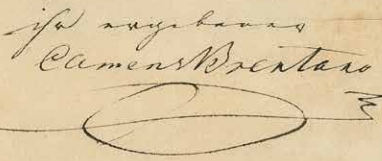 ihr ergebener
Clemens Brentano